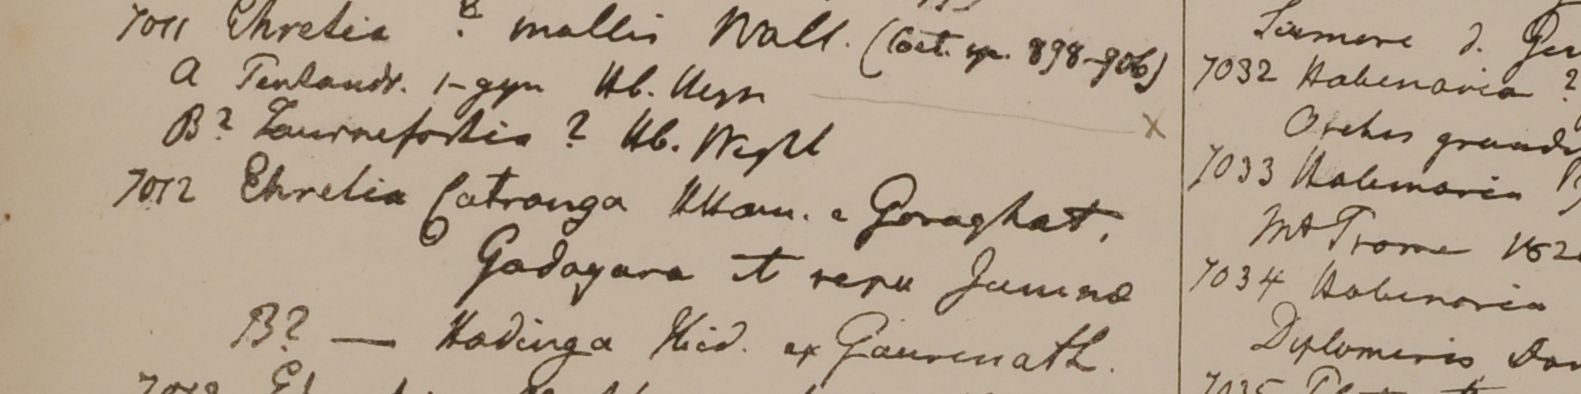 7011 Ehretia ? mollis Wall. (Cat. sp. 898-906)
A Pentandr. 1-gyn Hb. Heyn
B? Tournefortia ? Hb. Wight
7012 Ehretia Catronga HHam. e Goraghat.
Gadagara et repu Jumnae
B? — Hadinga Ibid. ex Gaurenath.
7013
d. Gen
7032 Habenaria ?
Orchis grandi
7033 Habenaria
Mt Prome 182
7034 Habenaria
Diplomeris Don
7035